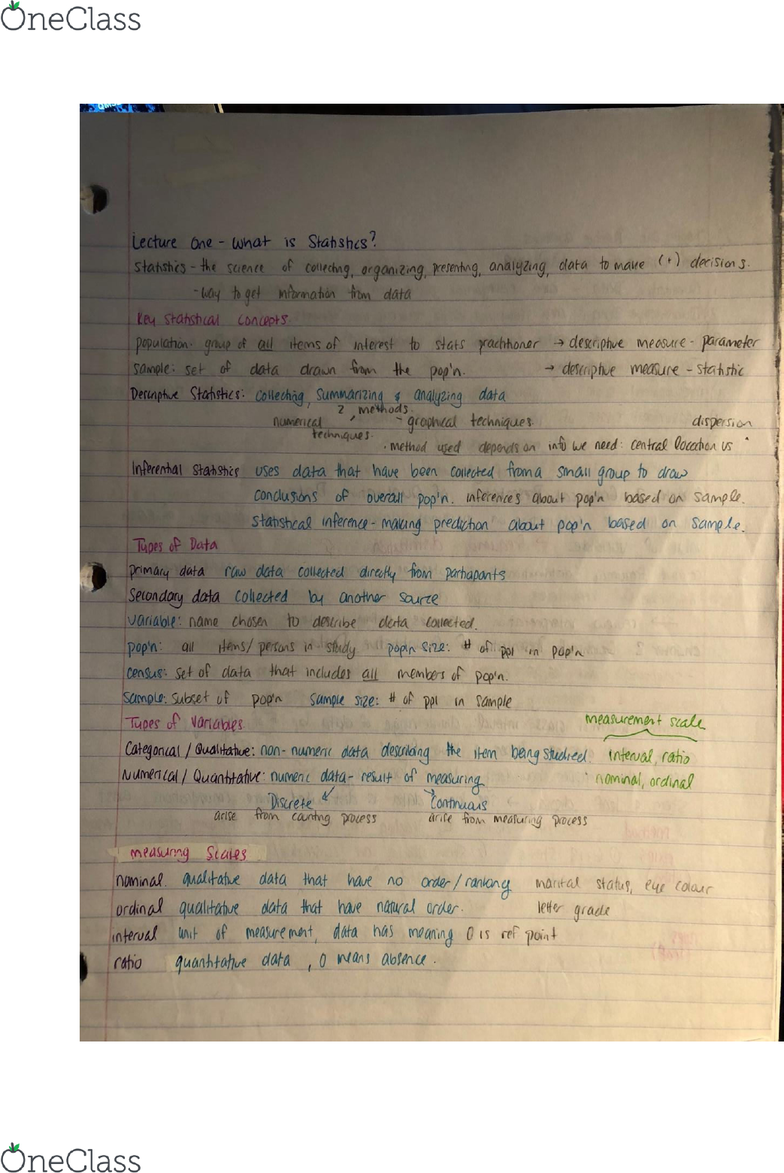 OneClass
Lecture One - What is Statistics?
Statistics - the science of collecting, organizing, presenting, analyzing, data to make (+) decisions.
- way to get information from data
Key Statistical Concepts
population: group of all items of interest to stats practitioner → descriptive measure - parameter
sample: set of data drawn from the pop'n. → descriptive measure - statistic
Descriptive Statistics: collecting, summarizing & analyzing data
2 methods
numerical techniques. - graphical techniques. dispersion
• method used depends on info we need: central location vs
Inferential Statistics uses data that have been collected from a small group to draw
conclusions of overall pop'n. inferences about pop'n based on sample.
Statistical inference - making prediction about pop'n based on sample.
Types of Data
primary data raw data collected directly from participants
Secondary data collected by another source
variable: name chosen to describe data collected.
pop'n: all items/persons in study pop'n size: # of ppl in pop'n
census: set of data that includes all members of pop'n.
sample: subset of pop'n sample size: # of ppl in sample
Types of Variables measurement scale
Categorical / Qualitative: non-numeric data describing the item being studied. interval, ratio
Numerical / Quantitative: numeric data - result of measuring nominal, ordinal
Discrete Continuous
arise from counting process arise from measuring process
measuring Scales
nominal qualitative data that have no order/ranking marital status, eye colour
ordinal qualitative data that have natural order. letter grade
interval unit of measurement, data has meaning 0 is ref point
ratio quantitative data, 0 means absence.
OneClass